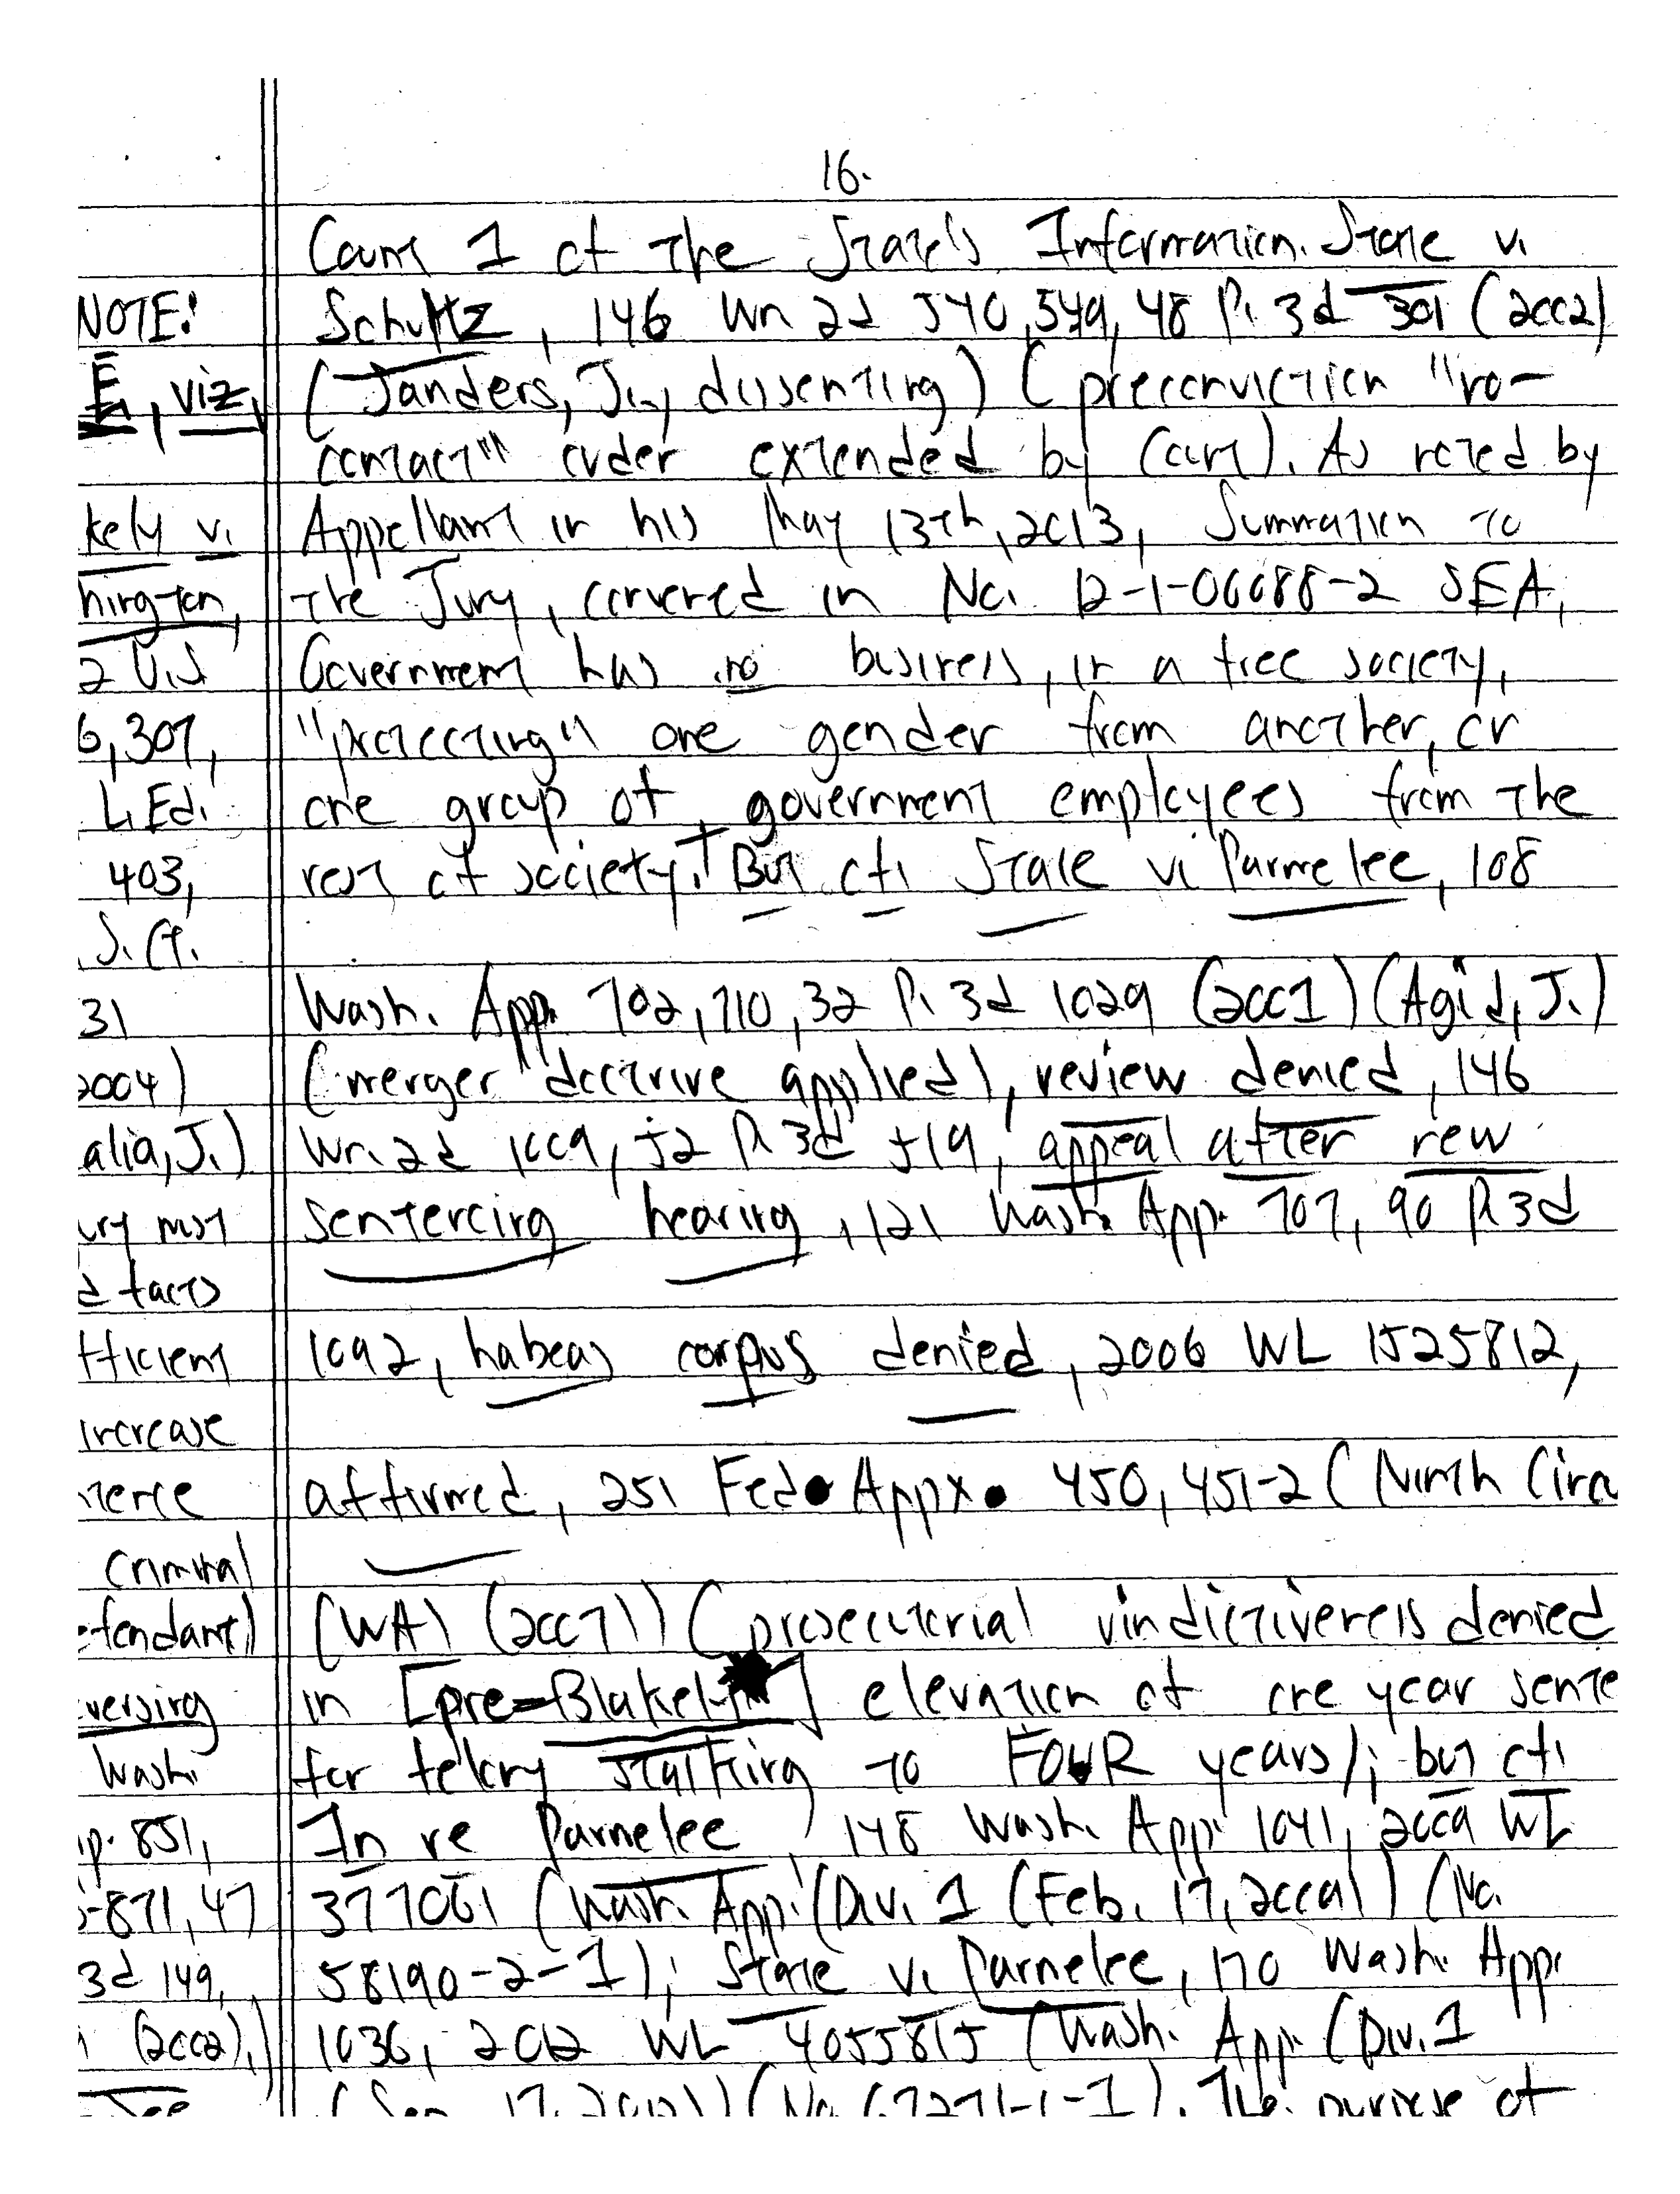 16.
Count 1 of the State's Information. State v.
Schultz, 146 Wn 2d 540, 549, 48 P. 3d 301 (2002)
(Sanders, J., dissenting) (preconviction "no-
contact" order extended by Court). As noted by
Appellant in his May 13th, 2013, Summation to
the Jury, convened in No. 12-1-06088-2 SEA,
Government has no business, in a free society,
"protecting" one gender from another, or
one group of government employees from the
rest of society.† But cf. State v. Parmelee, 108
Wash. App. 702, 710, 32 P. 3d 1029 (2001) (Agid, J.)
(merger doctrine applied), review denied, 146
Wn. 2d 1009, 52 P. 3d 519, appeal after new
sentencing hearing, 121 Wash. App. 707, 90 P. 3d
1092, habeas corpus denied, 2006 WL 1525812,
affirmed, 251 Fed. Appx. 450, 451-2 (Ninth Circu
(WA) (2007)) (prosecutorial vindictiveness denied
in [pre-Blakely] elevation of one year sente
for felony stalking to FOUR years); but cf.
In re Parmelee, 148 Wash. App. 1041, 2009 WL
377061 (Wash. App. (Div. 1 (Feb. 17, 2009) (No.
58190-2-1); State v. Parmelee, 170 Wash. App.
1036, 2012 WL 4055815 (Wash. App. (Div. 1
(Sep. 17, 2012)) (No. 67271-1-1). The purpose of
NOTE:
E, viz,
kely v.
hington,
2 U.S.
6, 307,
L. Ed.
403,
S. Ct.
31
2004)
alia, J.)
ury must
d facts
fficient
increase
ntence
criminal
efendant)
versing
Wash.
p. 851,
-871, 47
3d 149,
(2002).)
See